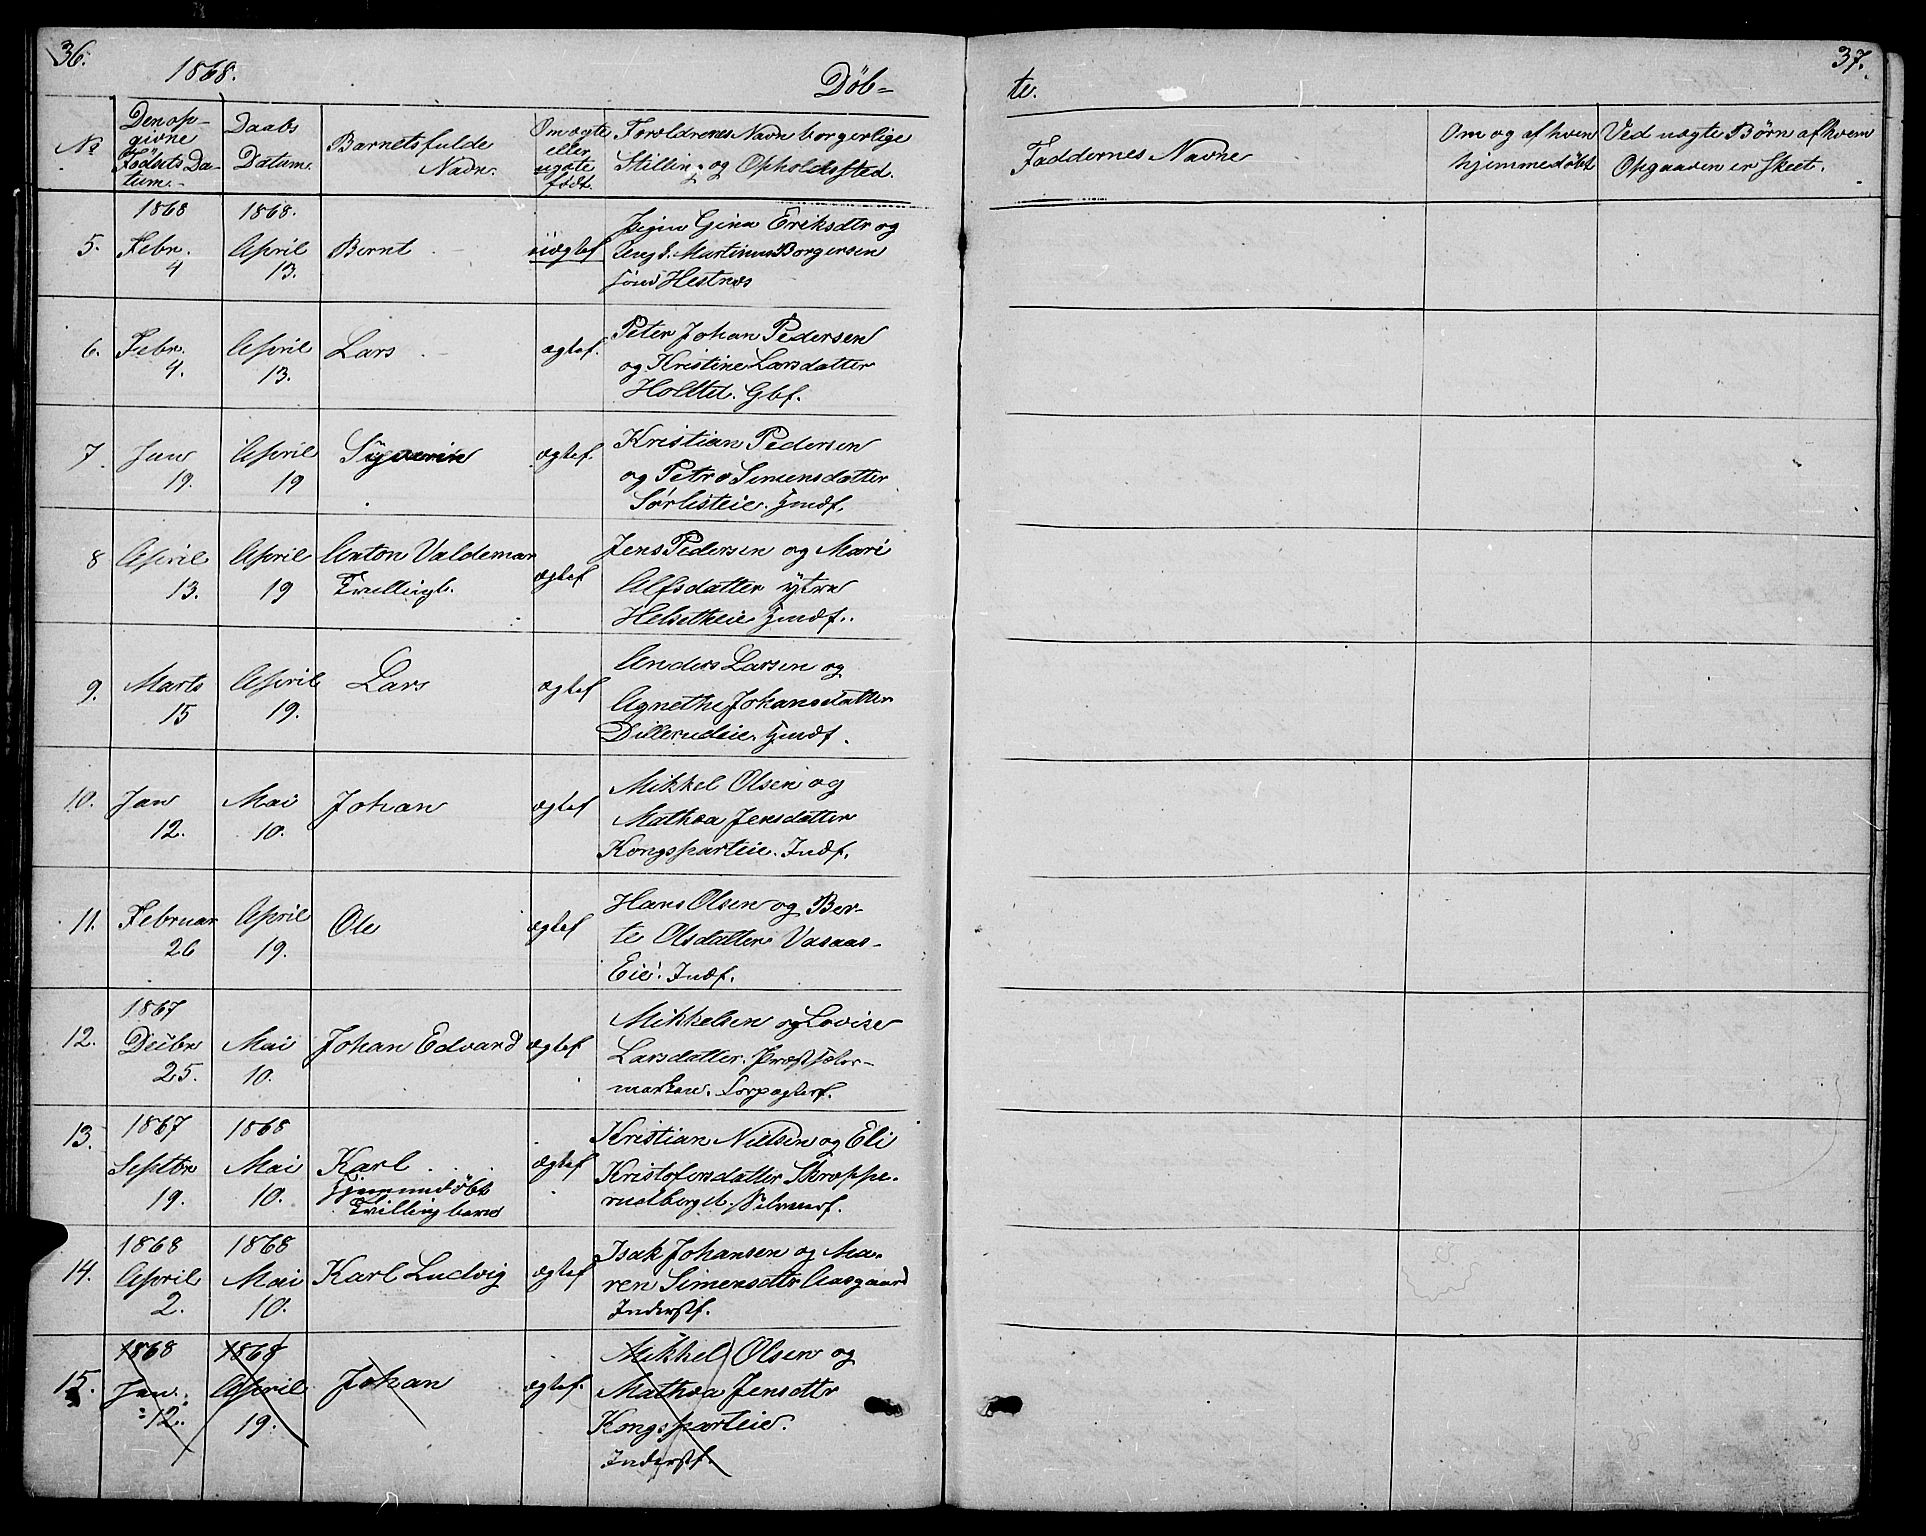 36.
1868.
Döb-
No
Den op-
givne
Födsels Da-
tum.
Daabs
Datum.
Barnets fulde
Navn.
Om ægte
eller
uægte
födt.
Forældrenes Navn borgerlige
Stilling og Opholdssted.
5.
1868
Febr.
4
1868.
April
13.
Bernt
uægtef
Gina Eriksdtr og
Martinus Borgersen
Hestnæs
6.
Febr.
4.
April
13.
Lars
ægtef.
Peter Johan Pedersen
og Kristine Larsdatter
Holdtet. Gbf.
7.
Jan
19.
April
19
ægtef.
Kristian Pedersen
og Petra Simensdatter
Sörlisteie. Jndf.
8
April
13.
April
19
Anton Valdemar
Tvillingb.
ægtef
Jens Pedersen og Mari
Alfsdatter ytre
Helsetheie Jndf.
9.
Marts
15
April
19.
Lars
ægtef
Anders Larsen og
Agnethe Johansdatter
Dillerudeie. Jndf.
10.
Jan
12.
Mai
10.
Johan
ægtef
Mikkel Olsen og
Mathea Jensdatter
Kongsparteie. Indf.
11.
Februar
26
April
19.
Ole
ægtef
Hans Olsen og Ber-
te Olsdatter Vasaas-
Eie. Indf.
12.
1867
Decbr
25.
Mai
10.
Johan Edvard
ægtef
Mikkelsen og Lovise
Larsdatter. Præstsæter-
marken. Forpagterf.
13.
1867
Septbr
19.
1868
Mai
10.
Karl
Hjemmedöbt
Tvillingbarn
ægtef
Kristian Nielsen og Eli
Kristofersdatter Skræppe-
rudberget. Selveierf.
14.
1868
April
2.
1868
Mai
10.
Karl Ludvig
ægtef
Isak Johansen og Ma-
ren Simensdtr Aasgaard
Inderstf.
15.
1868
Jan.
12.
1868
April
19.
Johan
ægtef.
Mikkel Olsen og
Mathea Jensdtr
Kongsparteie.
Inderstf.
37.
te.
Faddernes Navne
Om og af hvem
hjemmedöbt
Ved uægte Börn af hvem
Opgaaven er skeet.